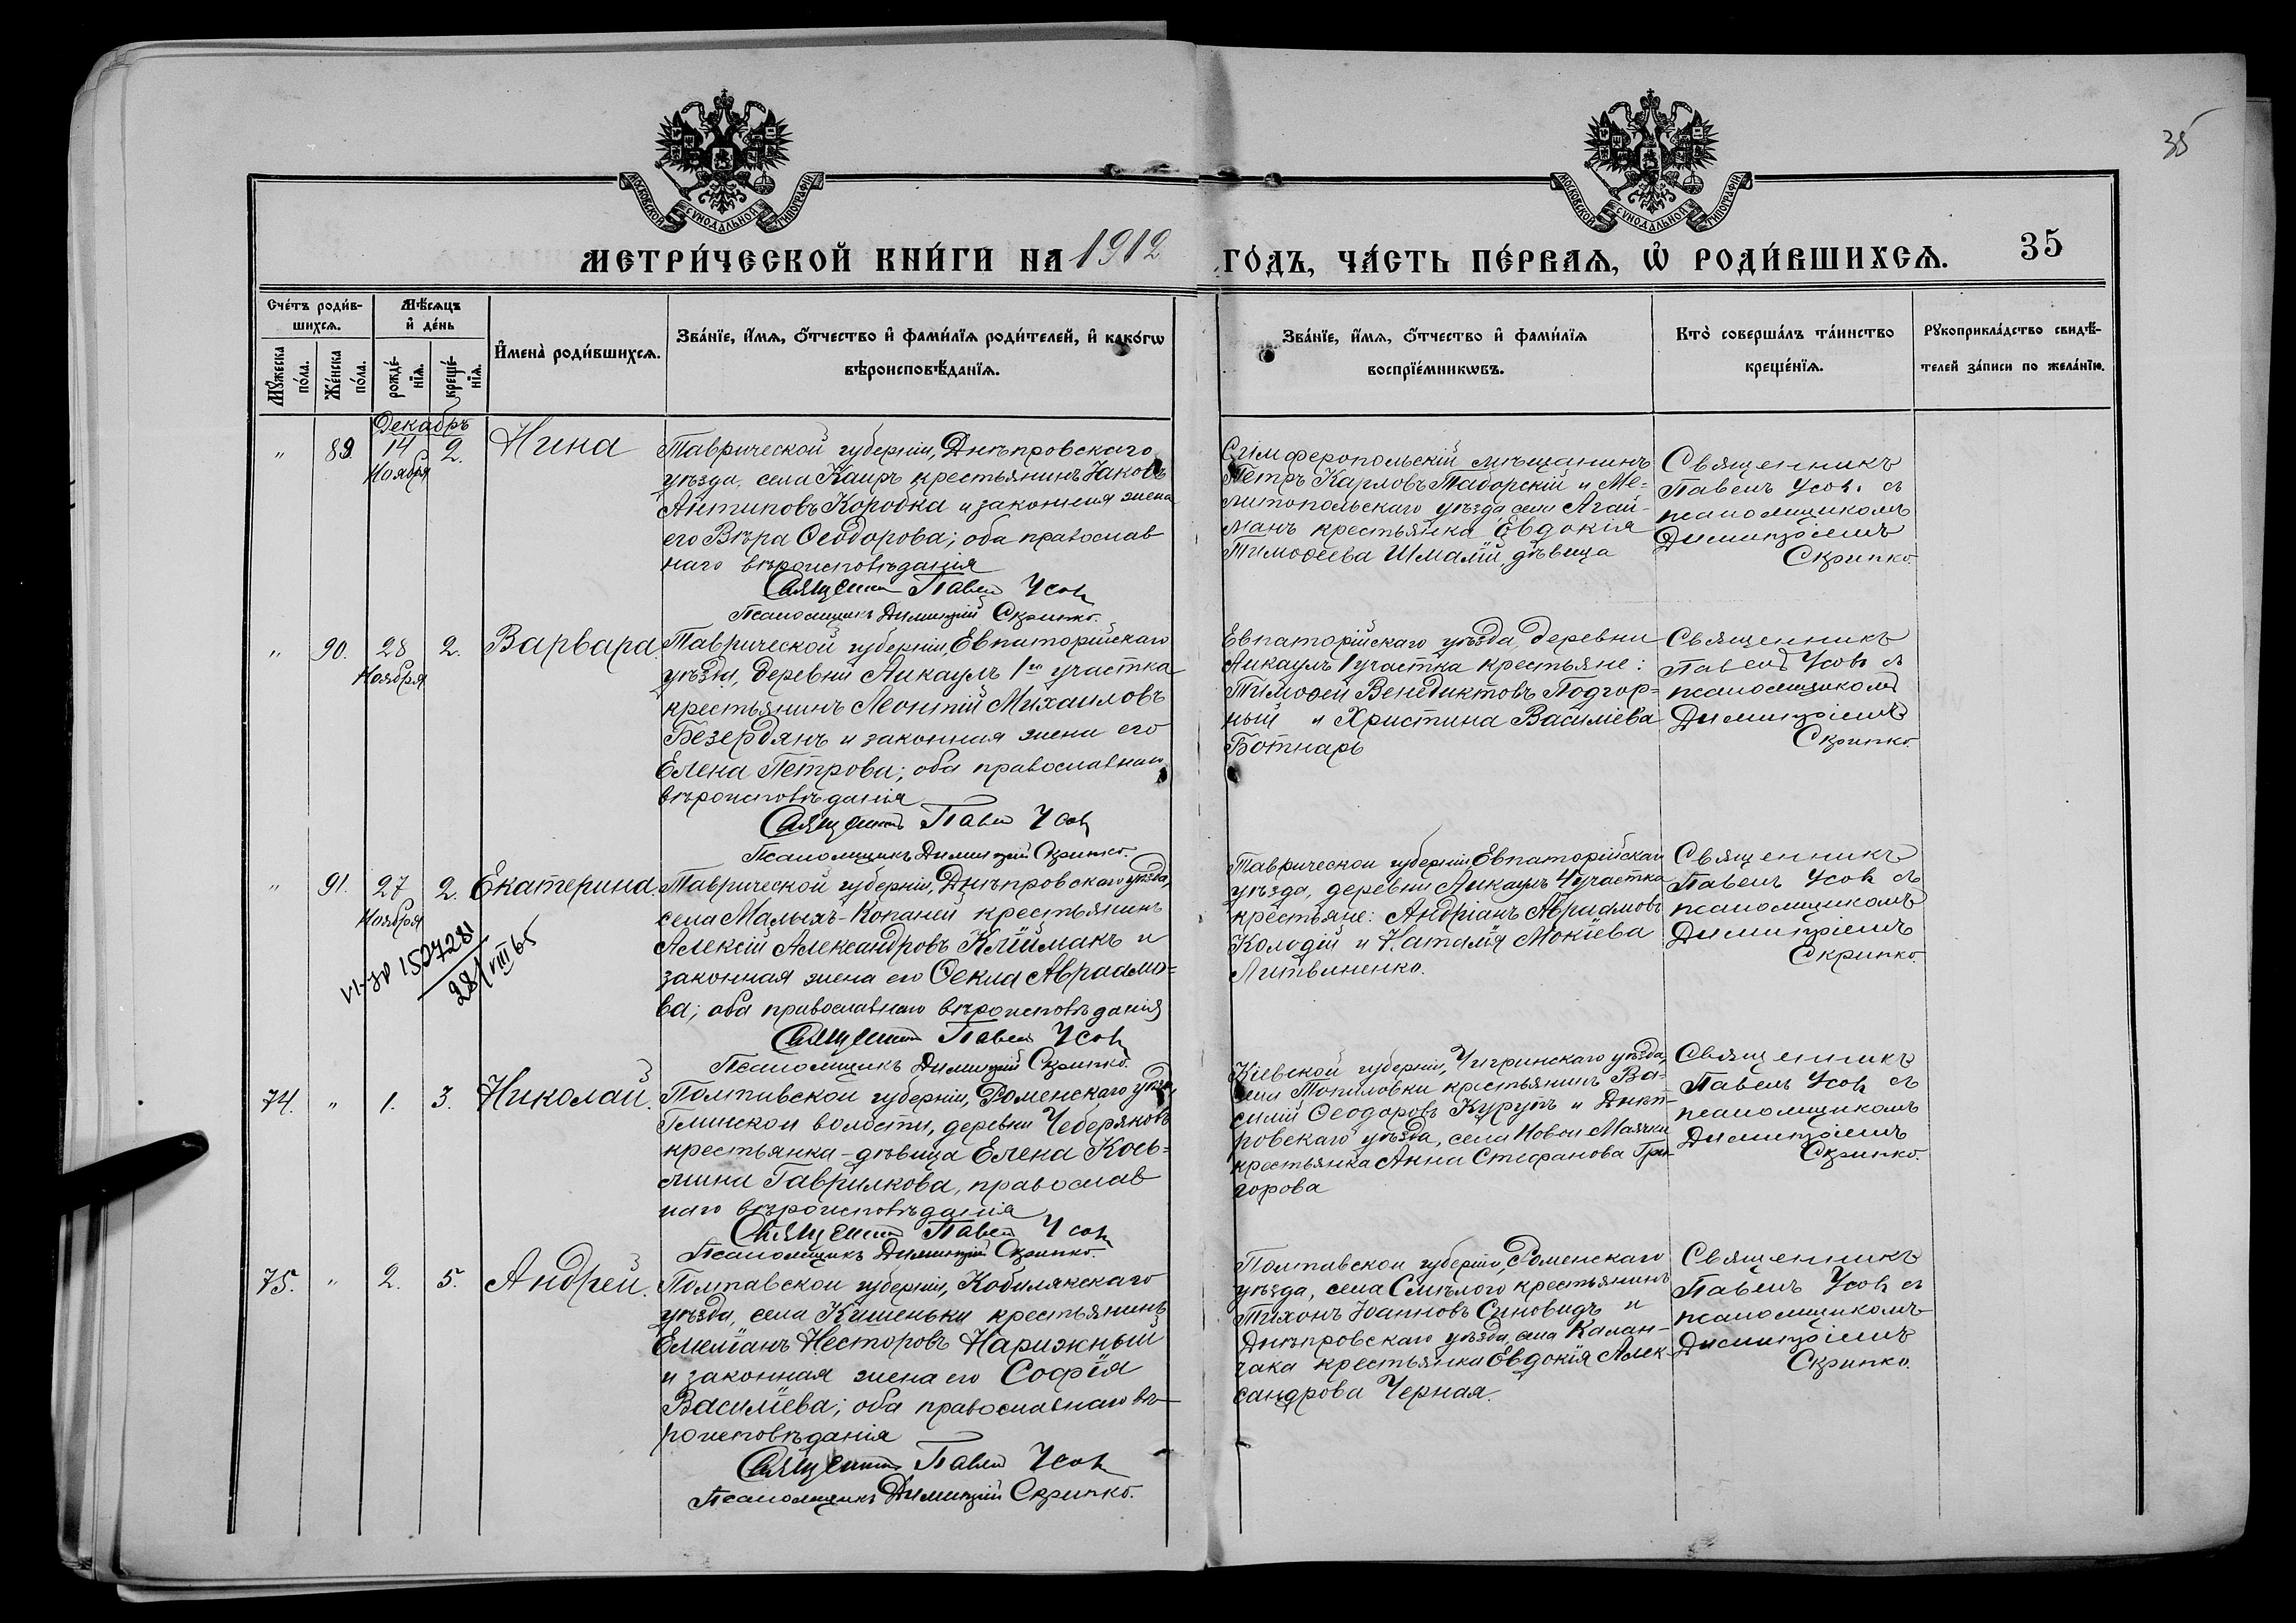 35
МОСКОВСКОЙ СУНОДАЛЬНОЙ ТИПОГРАФІИ
МОСКОВСКОЙ СУНОДАЛЬНОЙ ТИПОГРАФІИ
МЕТРИ́ЧЕСКОЙ КНИ́ГИ НА 1912 ГО́ДЪ, ЧА́СТЬ ПЕ́РВАЯ, Ѡ҆ РОДИ́ВШИХСЯ. 35
Сче́тъ роди́в-
шихся.
Мѣ́сяцъ
и҆ де́нь
Мꙋ́жеска
по́ла.
Же́нска
по́ла.
рожде́-
нїя.
креще́-
нїя.
И҆мена̀ роди́вшихся.
Зва́нїе, и҆́мя, ѻ҆́тчество и҆ фами́лїя роди́телей, и҆ како́гѡ
вѣроисповѣ́данїя.
Зва́нїе, и҆́мя, ѻ҆́тчество и҆ фами́лїя
воспрїе́мникѡвъ.
Кто̀ соверша́лъ та́инство
креще́нїя.
Рꙋкоприкла́дство свидѣ́-
телей за́писи по жела́нїю.
Декабрь
" 89. 14 2. Нина
Ноября
Таврической губерніи, Днѣпровскаго
уѣзда, села Каиръ крестьянинъ Іаковъ
Антиповъ Коробка и законная жена
его Вѣра Ѳеодорова; оба православ
наго вѣроисповѣданія
Священникъ Павелъ Усовъ
Псаломщикъ Димитрій Скрипко.
Симферопольскій мѣщанинъ
Петръ Карловъ Таборскій и Ме-
литопольскаго уѣзда села Агай-
манъ крестьянка Евдокія
Тимоѳеева Шмалій, дѣвица
Священникъ
Павелъ Усовъ съ
псаломщикомъ
Димитріемъ
Скрипко.
" 90. 28 2. Варвара.
Ноября
Таврической губерніи, Евпаторійскаго
уѣзда, деревни Аикаулъ 1го участка
крестьянинъ Леонтій Михаиловъ
Безердянъ и законная жена его
Елена Петрова; оба православнаго
вѣроисповѣданія
Священникъ Павелъ Усовъ
Псаломщикъ Димитрій Скрипко.
Евпаторійскаго уѣзда, деревни
Аикаулъ 1 участка крестьяне:
Тимоѳей Венедиктовъ Подгор-
ный и Христина Василіева
Ботнарь
Священникъ
Павелъ Усовъ съ
псаломщикомъ
Димитріемъ
Скрипко.
" 91. 27 2. Екатерина.
Ноября
1527281
28/VIII 65
Таврической губерніи, Днѣпровскаго уѣзда,
села Малыхъ-Копаней крестьянинъ
Алексій Александровъ Клиймакъ и
законная жена его Ѳекла Авраамо-
ва; оба православнаго вѣроисповѣданія
Священникъ Павелъ Усовъ
Псаломщикъ Димитрій Скрипко.
Таврической губерніи Евпаторійскаго
уѣзда, деревни Аикаулъ 4 участка
крестьяне: Андріанъ Авраамовъ
Колодій и Наталія Мокіева
Литвиненко.
Священникъ
Павелъ Усовъ съ
псаломщикомъ
Димитріемъ
Скрипко.
74. " 1. 3. Николай.
Полтавской губерніи, Роменскаго уѣзда,
Глинской волости, деревни Чеберяковъ
крестьянка-дѣвица Елена Кось-
мина Гаврилкова, православ
наго вѣроисповѣданія
Священникъ Павелъ Усовъ
Псаломщикъ Димитрій Скрипко.
Кіевской губерніи, Чигринскаго уѣзда,
села Топиловки крестьянинъ Ва-
силій Ѳеодоровъ Курупъ и Днѣп-
ровскаго уѣзда, села Новой Маячки
крестьянка Анна Стефанова Гри-
горова
Священникъ
Павелъ Усовъ съ
псаломщикомъ
Димитріемъ
Скрипко.
75. " 2. 5. Андрей.
Полтавской губерніи, Кобилякскаго
уѣзда, села Кишеньки крестьянинъ
Емеліанъ Несторовъ Нарижный
и законная жена его Софія
Василіева; оба православнаго вѣ-
роисповѣданія
Священникъ Павелъ Усовъ
Псаломщикъ Димитрій Скрипко.
Полтавской губерніи, Роменскаго
уѣзда, села Смѣлого крестьянинъ
Тихонъ Іоанновъ Синовидъ и
Днѣпровскаго уѣзда, села Калан-
чака крестьянка Евдокія Алек-
сандрова Черная.
Священникъ
Павелъ Усовъ съ
псаломщикомъ
Димитріемъ
Скрипко.